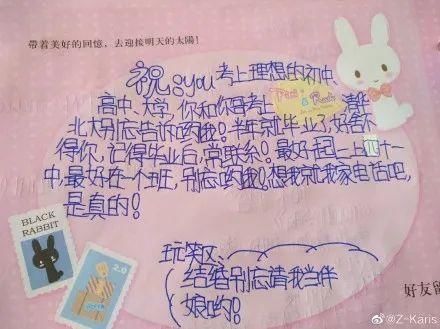 帶着美好的回憶，去迎接明天的太陽！
祝：you 考上理想的初中、
高中、大学，你和你哥考上清华
北大别忘告诉哟我！半年就毕业了，好舍不
得你，记得毕业后，常联系！最好起一上四十一
中，最好在一个班，别忘哟我！想我就我家电话吧，
是真的！
BLACK
RABBIT
2.0
玩笑区、
结婚别忘请我当伴
娘哟！
好友留
@Z-Karis